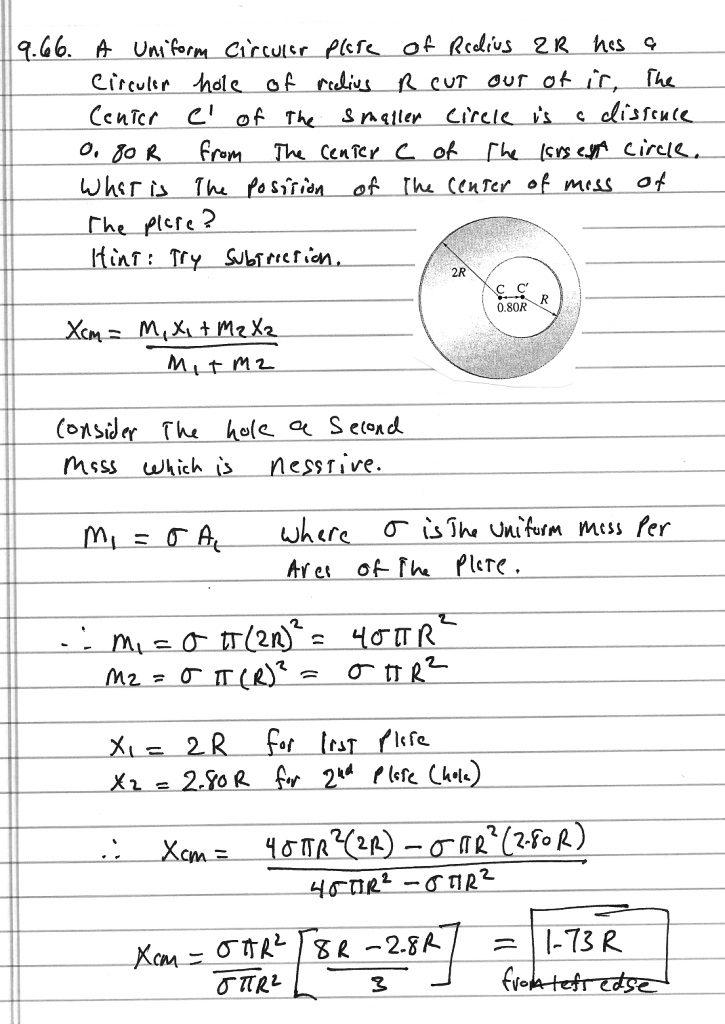 9.66. A Uniform Circular Plate of Radius 2R has a
Circular hole of radius R cut out of it, The
Center C' of the smaller circle is a distance
0.80R from The Center C of The largest circle.
What is The Position of The Center of mass of
The plate?
Hint: Try Subtraction.
2R
C C'
0.80R
R
Xcm = M₁X₁ + M₂X₂
M₁ + M₂
Consider The hole a Second
Mass which is negative.
M₁ = σ A, where σ is The Uniform Mass Per
Area of The Plate.
∴ M₁ = σ π(2R)² = 4σπR²
M₂ = σ π(R)² = σπR²
X₁ = 2R for 1rst Plate
X₂ = 2.80R for 2nd Plate (hole)
∴ Xcm = 4σπR²(2R) – σπR²(2.80R)
4σπR² – σπR²
Xcm = σπR² [8R – 2.8R] = 1.73R
σπR² 3 from left edge